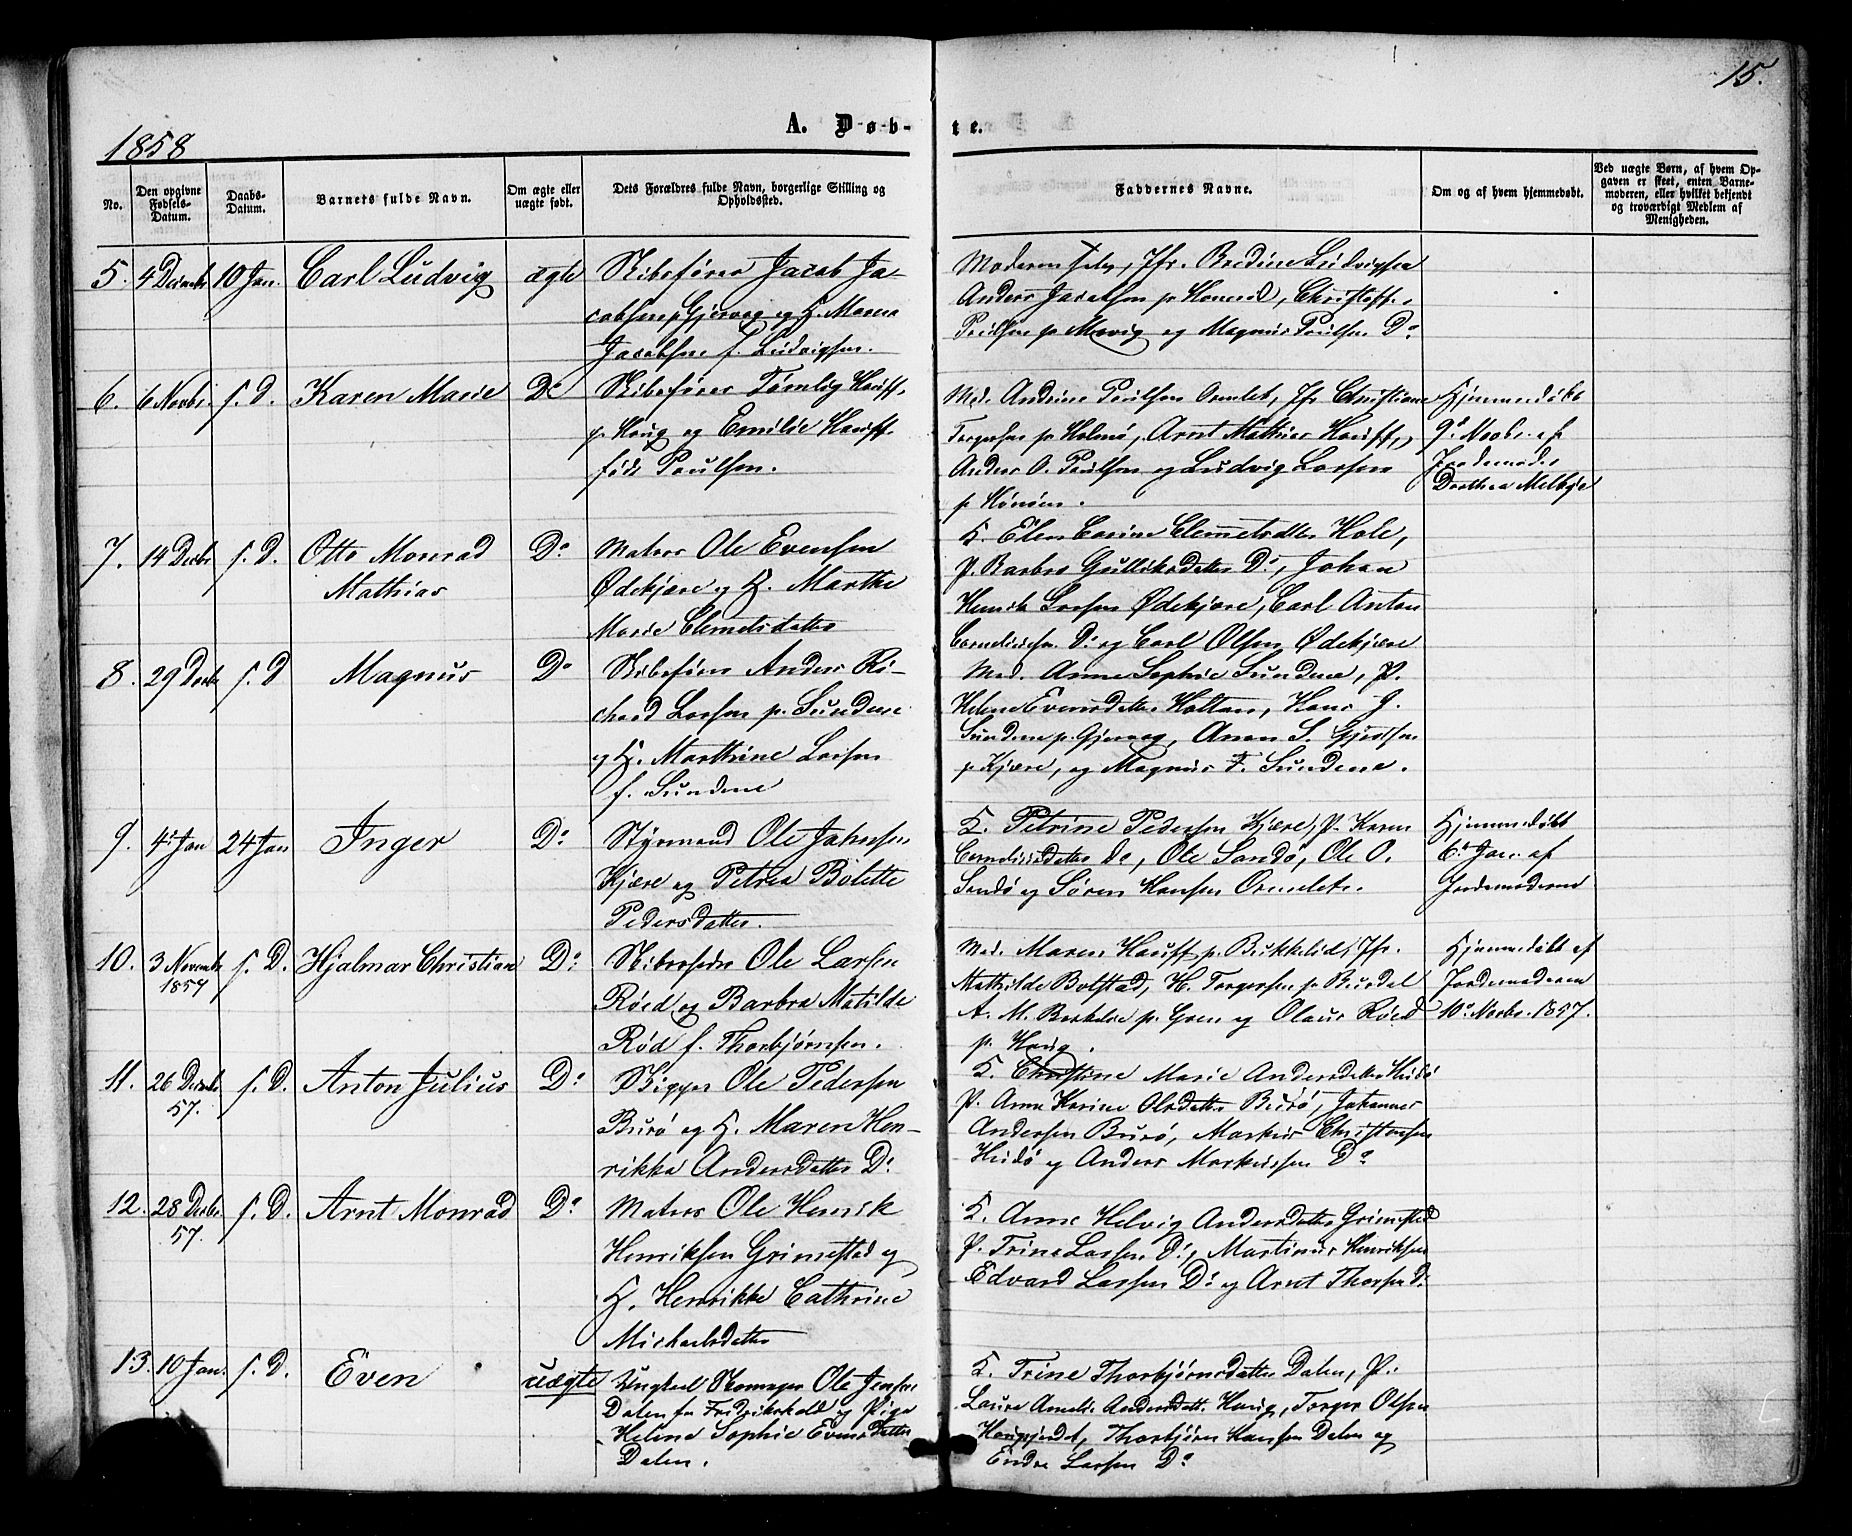 15.
A. Døb-
te.
1858
No.
Den opgivne Fødsels-Datum.
Daabs-Datum.
Barnets fulde Navn.
Om ægte eller uægte født.
Dets Forældres fulde Navn, borgerlige Stilling og Opholdssted.
Faddernes Navne.
Om og af hvem hjemmedøbt.
Ved uægte Børn, af hvem Op-
gaven er skeet, enten Barne-
moderen, eller hvilket bekjendt
og troværdigt Medlem af
Menigheden.
5. 4 Decmbr 10 Jan. Carl Ludvig ægte
Skibsfører Jacob Ja-
cobsen p Gjervog og H. Maren
Jacobsen f. Ludvigsen.
Moderen selv, Jfr. Bredine Ludvigsen
Anders Jacobsen p. Christoff.
Poulsen p. og Magnus Poulsen Do
6. 6 Novbr. s. D. Karen Marie Do
Skibsfører Tømlig Hauff
p. Haug og Emilie Hauff
født Poulsen.
Mad. Andrine Poulsen Ormlet, Jfr Christiane
Torgersen p. Holmø, Arnt Mathias Hauff,
Anders O. Poulsen og Ludvig Larsen
p.
Hjemmedøbt
9de Novbr. af
Jordemoder
Dorthea Melbye
7. 14 Decbr s. D. Otto Monrad
Mathias
Do
Matros Ole Evensen
Ødekjære og H. Marthe
Marie Clemetsdatter
K. Elen Carine Clemmetsdtter Hole,
P. Barbro Gulliksdatter Do, Johan
Henrik Larsen Ødekjære, Carl Anton
Corneliussen Do og Carl Olsen Ødekjære
8. 29 Decbr s. D Magnus Do
Skibsfører Anders Ri-
chard Larsen p. Sundene
og H. Marthine Larsen
f. Sundene
Mad. Anne Sophie Sundene, P.
Helene Evensdatter Holtan, Hans J.
Sundene p. Gjervog, Anon S.
p. Kjære, og Magnus F. Sundene.
9. 4de Jan 24 Jan Inger Do
Styrmand Ole Johnsen
Kjære og Petrea Bolette
Pedersdatter.
K. Petrine Pedersen Kjære, P. Karen
Corneliusdatter Do, Ole Sandø, Ole O.
Sandø og Søren Hansen Ormelet.
Hjemmedøbt
6te Jan. af
Jordemoderen
10. 3 Novembr
1857
s. D. Hjalmar Christian Do
Skibsreder Ole Larsen
Røed og Barbra Matilde
Rød f. Thorbjørnsen.
Mad. Maren Hauff p. Bukkelid, Jfr.
Mathilde Bolstad, H. Torgersen p. Buerdal
A. M. p. og Olaus Røed
p. Haug.
Hjemmedøbt af
Jordemoderen
10de Novbr. 1857.
11. 26 Decbr
57.
s. D. Anton Julius Do
Skipper Ole Pedersen
Burø og H. Maren Hen-
rikka Andersdatter Do
K. Christine Marie Andersdatter Huidø
P. Anne Karine Olsdatter Burø, Johannes
Andersen Burø, Markus Christensen
Huidø og Anders Markussen Do
12. 28 Decbr.
57.
s. D. Arnt Monrad Do
Matros Ole Henrik
Henriksen Grimestad og
H. Henrikke Cathrine
Michaelsdatter
K. Anne Helvig Andersdatter Grimestad
P. Trine Larsen Do, Martinus Henriksen
Edvard Larsen Do og Arnt Thorsen Do
13. 10 Jan. s. D. Even uægte
Ungkarl Skomager Ole Jensen
Dalen fra Fredrikshald og Pige
Helene Sophie Evensdatter
Dalen.
K. Trine Thorbjørnsdatter Dalen, P.
Laura Amalie Andersdatt. Haug, Torger Olsen
Haugjordet, Thorbjørn Hansen Dalen og
Endre Larsen Do